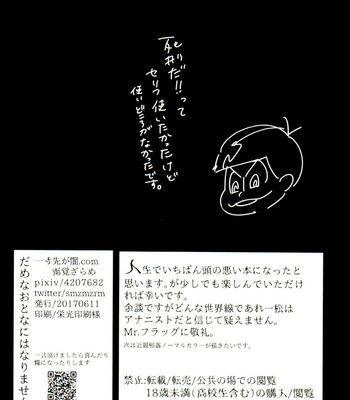 死刑だ!!って
セリフ使いたかったけど
使いどころがなかったです。
一寸先が闇.com
雨覚ざらめ
pixiv/4207682
twitter/smzmzrm
発行/20170611
印刷/栄光印刷様
一言頂けましたら喜んだり
糧になったりします
だめなおとなにはなりませ
人生でいちばん頭の悪い本になったと
思います。が少しでも楽しんでいただけ
れば幸いです。
余談ですがどんな世界線であれ一松は
アナニストだと信じて疑えません。
Mr.フラッグに敬礼。
次は近親相姦ノーマルカラーが描きたいです。
禁止:転載/転売/公共の場での閲覧
18歳未満(高校生含む)の購入/閲覧